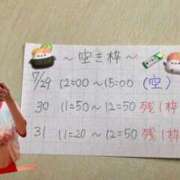 ～空き枠～
7/29 12=00～15=00 (空)
30 11=50～12=50 残1枠
31 11=20～12=50 残1枠